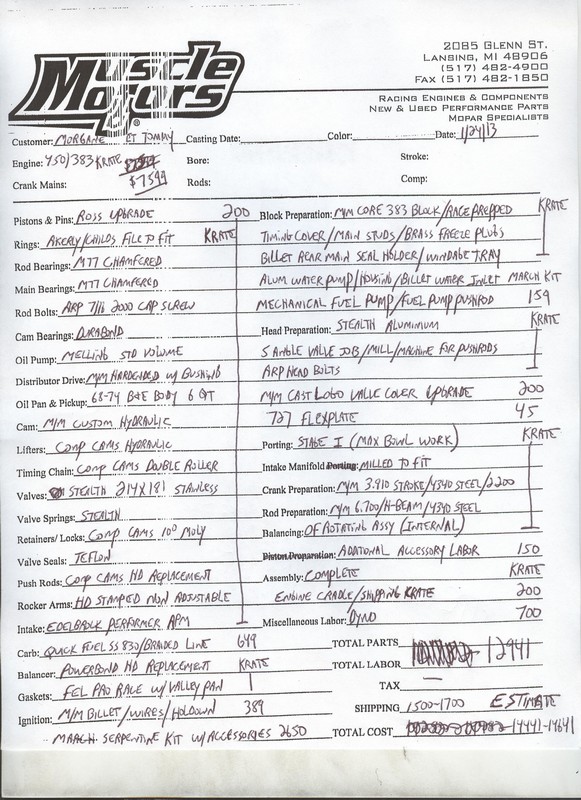 Muscle Motors
2085 Glenn St.
Lansing, MI 48906
(517) 482-4900
Fax (517) 482-1850
Racing Engines & Components
New & Used Performance Parts
Mopar Specialists
Customer: MORGANE ET TOMMY Casting Date: Color: Date: 1/24/13
Engine: 450/383 KRATE Bore: Stroke:
Crank Mains: $7599 Rods: Comp:
Pistons & Pins: ROSS UPGRADE 200
Rings: AKERLY/CHILDS FILE TO FIT KRATE
Rod Bearings: M77 CHAMFERED
Main Bearings: M77 CHAMFERED
Rod Bolts: ARP 7/16 2000 CAP SCREW
Cam Bearings: DURABOND
Oil Pump: MELLING STD VOLUME
Distributor Drive: M/M HARDENDED W/ BUSHING
Oil Pan & Pickup: 68-74 B&E BODY 6 QT
Cam: M/M CUSTOM HYDRAULIC
Lifters: COMP CAMS HYDRAULIC
Timing Chain: COMP CAMS DOUBLE ROLLER
Valves: STEALTH 214X181 STAINLESS
Valve Springs: STEALTH
Retainers/ Locks: COMP CAMS 10° MOLY
Valve Seals: TEFLON
Push Rods: COMP CAMS HD REPLACEMENT
Rocker Arms: HD STAMPED NON ADJUSTABLE
Intake: EDELBROCK PERFORMER RPM
Carb: QUICK FUEL SS 830/BRAIDED LINE 649
Balancer: POWERBOND HD REPLACEMENT KRATE
Gaskets: FEL PRO RACE W/ VALLEY PAN
Ignition: M/M BILLET/WIRES/HOLDOWN 389
MARCH SERPENTINE KIT W/ACCESSORIES 2650
Block Preparation: M/M CORE 383 BLOCK/RACE PREPPED KRATE
TIMING COVER/MAIN STUDS/BRASS FREEZE PLUGS
BILLET REAR MAIN SEAL HOLDER/WINDAGE TRAY
ALUM WATER PUMP/HOUSING/BILLET WATER INLET MARCH KIT
MECHANICAL FUEL PUMP/FUEL PUMP PUSHROD 159
Head Preparation: STEALTH ALUMINUM KRATE
5 ANGLE VALVE JOB/MILL/MACHINE FOR PUSHRODS
ARP HEAD BOLTS
M/M CAST LOGO VALVE COVER UPGRADE 200
727 FLEXPLATE 45
Porting: STAGE I (MAX BOWL WORK) KRATE
Intake Manifold Porting: MILLED TO FIT
Crank Preparation: M/M 3.910 STROKE/4340 STEEL/2.200
Rod Preparation: M/M 6.700/H-BEAM/4340 STEEL
Balancing: OF ROTATING ASSY (INTERNAL)
Piston Preparation: ADATIONAL ACCESSORY LABOR 150
Assembly: COMPLETE KRATE
ENGINE CRADLE/SHIPPING KRATE 200
Miscellaneous Labor: DYNO 700
TOTAL PARTS 12941
TOTAL LABOR
TAX —
SHIPPING 1500-1700 ESTIMATE
TOTAL COST 14441-14641